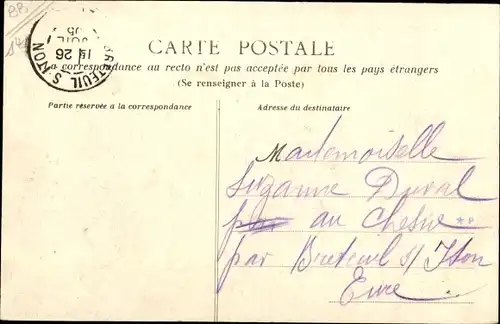 BB
BRETEUIL S. ITON
15 26
JUIL
05
CARTE POSTALE
La correspondance au recto n'est pas acceptée par tous les pays étrangers
(Se renseigner à la Poste)
Partie réservée a la correspondance
Adresse du destinataire
Mademoiselle
Suzanne Duval
par au Chesne
par Breteuil s/ Iton
Eure